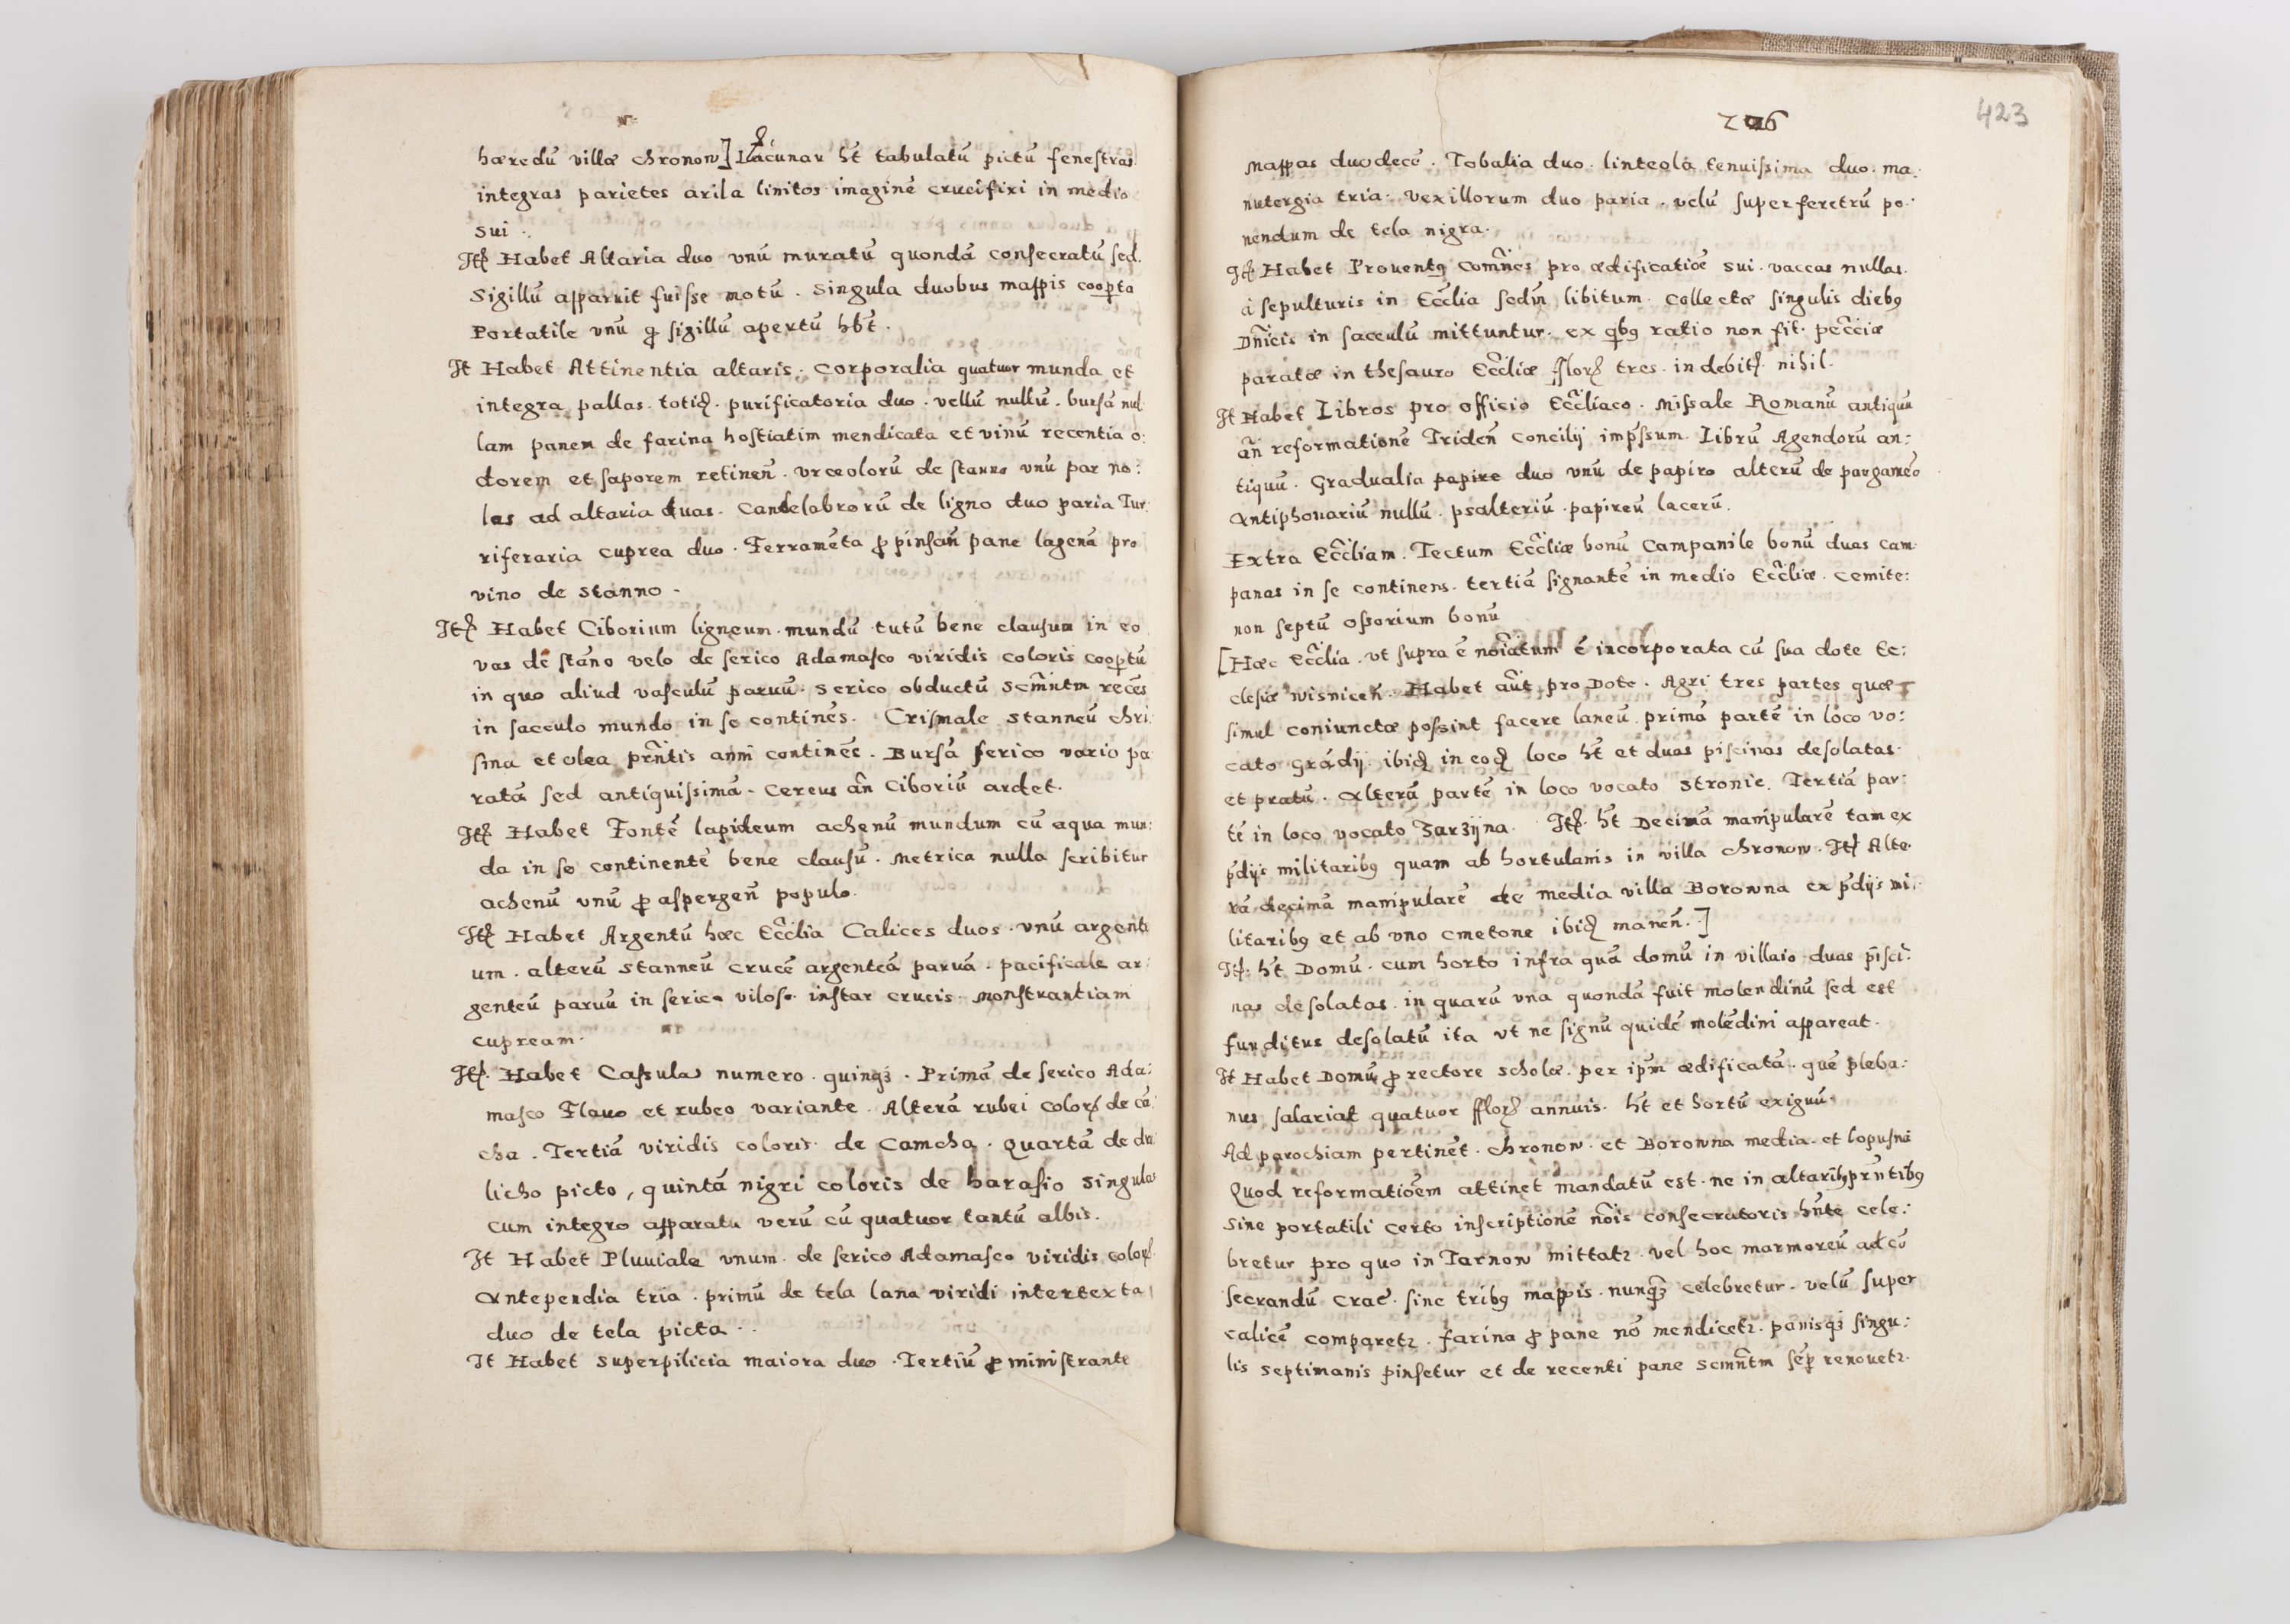 hæredū villæ chronow] Lacunar ht̄ tabulatū pictū fenestras
integras parietes arila linitos imaginē crucifixi in medio
sui.
Itꝫ Habet Altaria duo vnū muratū quondā consecratū sed.
Sigillū apparuit fuisse motū. Singula duobus mappis coopta
Portatile vnū ꝓ sigillū apertū hbt̄.
It Habet Attinentia altaris. Corporalia quatuor munda et
integra pallas. totiđ. purificatoria duo. vellū nullū. bursā nul
lam panem de farina hostiatim mendicata et vinū recentia o:
dorem et saporem retinen̄. vrceolorū de stanno vnū par no:
las ad altaria duas. Candelabrorū de ligno duo paria Tur:
riferaria cuprea duo. Ferramēta ꝓ pinsan̄ pane lagenā pro
vino de stanno.
Itꝫ Habet Ciborium ligneum mundū tutū bene clausum in eo
vas de stāno velo de serico Adamasco viridis coloris cooptū
in quo aliud vasculū parvū. serico obductū scm̄ntm recēs
in sacculo mundo in se continēs. Crismale stanneū chri:
sina et olea prn̄tis anni continēs. Bursā serico vario pa
ratā sed antiquissimā. Cereus an̄ Ciboriū ardet.
Itꝫ Habet Fontē lapideum achenū mundum cū aqua mun:
da in se continentē bene clausū. Metrica nulla scribitur
achenū vnū ꝓ aspergen̄ populo.
Itꝫ Habet Argentū hæc Eccl̄ia Calices duos. vnū argente
um. alterū stanneū crucē argenteā parvā. pacificale ar:
genteū parvū in serico viloso instar crucis. Monstrantiam
cupream.
Itꝫ. Habet Casulas numero. quinqꝫ. Primā de serico Ada:
masco Flavo et rubeo variante. Alterā rubei colorꝫ de cā:
cha. Tertiā viridis coloris. de Camcha. Quartā de dre
licho picto, quintā nigri coloris de harasio singulas
cum integro apparatu verū cū quatuor tantū albis.
It Habet Pluviale vnum de serico Adamasco viridis colorꝫ.
Antependia tria. primū de tela lana viridi intertexta
duo de tela picta.
It Habet superpilicia maiora duo. Tertiū ꝓ ministrante
423
206
Mappas duodecē. Tobalia duo. linteola tenuissima duo. ma:
nutergia tria. vexillorum duo paria. velū super feretrū po:
nendum de tela nigra.
Itꝫ Habet Proventꝰ com̄nes pro ædificatiōe sui. vaccas nullas.
à sepulturis in Eccl̄ia sedm̄ libitum. Collectæ singulis diebꝰ
Dn̄icis in sacculū mittuntur. ex qbꝰ ratio non fit. pecc̄iæ
paratæ in thesauro Eccl̄iæ fflorꝫ tres. in debitꝫ. nihil.
It Habet Libros pro officio Eccl̄iaco. Missale Romanū antiquū
an̄ reformationē Triden̄ Concilij imp̄ssum. Librū Agendorū an:
tiquū. Gradualia papire duo vnū de papiro alterū de pargamēo
Antiphonariū nullū. psalteriū. papireū lacerū.
Extra Eccl̄iam. Tectum Eccl̄iæ bonū Campanile bonū duas cam:
panas in se continens. tertiā signantē in medio Eccl̄iæ. Cemite:
non septū Ossorium bonū
[Hæc Eccl̄ia. vt supra ē noīatum ē incorporata cū sua dote Ec:
clesiæ Wisnicen̄. Habet aūt pro Dote. Agri tres partes quæ
simul coniunctæ possint facere laneū. primā partē in loco vo:
cato Grādij. ibiđ in eođ loco ht̄ et duas piscinas desolatas.
et pratū. Alterā partē in loco vocato Stronie. Tertiā par:
tē in loco vocato Zarzijna. Itꝫ. ht̄ Decimā manipularē tam ex
p̄dijs militaribꝰ quam ab hortulanis in villa chronow. Itꝫ Alte.
rā decimā manipularē de media villa Borowna ex p̄dijs mi:
litaribꝰ et ab vno cmetone ibiđ manen̄.]
Itꝫ. ht̄ Domū. cum horto infra quā domū in villaio duas pisci:
nas desolatas. in quarū vna quondā fuit molendinū sed est
funditus desolatū ita vt ne signū quidē molēdini appareat.
It Habet Domū ꝓ rectore scholæ. per ip̄m ædificatā. quē pleba:
nus salariat quatuor fflorꝫ annuis. ht̄ et hortū exiguū.
Ad parochiam pertinēt. Chronow. et Borowna media. et lopusna
Quod reformatiōem attinet mandatū est. ne in altaribꝰ prn̄tibꝰ
sine portatili certo inscriptionē nōis consecratoris hn̄te cele:
bretur pro quo in Tarnow mittatꝛ. vel hoc marmoreū ad cō
secrandū Crac̄. sine tribꝰ mappis. nunqꝫ celebretur. velū super
calicē comparetꝛ. farina ꝓ pane nō mendicetꝛ. panisqꝫ singu:
lis septimanis pinsetur et de recenti pane scmn̄tm sēp renovetꝛ.